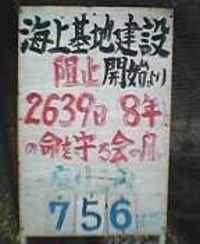 海上基地建設
阻止開始より
2639日 8年
の命を守る会の
756